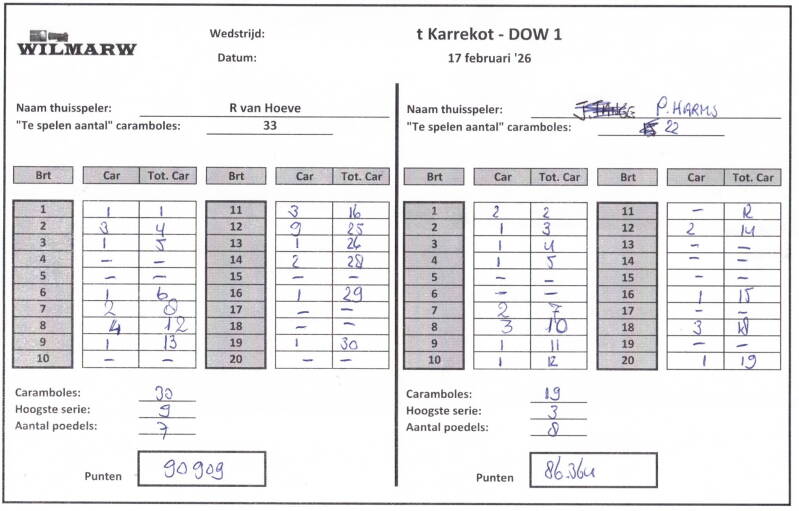 WILMARW
Wedstrijd: t Karrekot - DOW 1
Datum: 17 februari '26
Naam thuisspeler: R van Hoeve
"Te spelen aantal" caramboles: 33
Brt Car Tot. Car Brt Car Tot. Car
1 1 1 11 3 16
2 3 4 12 9 25
3 1 5 13 1 26
4 – – 14 2 28
5 – – 15 – –
6 1 6 16 1 29
7 2 8 17 – –
8 4 12 18 – –
9 1 13 19 1 30
10 – – 20 – –
Caramboles: 30
Hoogste serie: 9
Aantal poedels: 7
Punten 90909
Naam thuisspeler: P. HARMS
"Te spelen aantal" caramboles: 22
Brt Car Tot. Car Brt Car Tot. Car
1 2 2 11 – 12
2 1 3 12 2 14
3 1 4 13 – –
4 1 5 14 – –
5 – – 15 – –
6 – – 16 1 15
7 2 7 17 – –
8 3 10 18 3 18
9 1 11 19 – –
10 1 12 20 1 19
Caramboles: 19
Hoogste serie: 3
Aantal poedels: 8
Punten 86.364